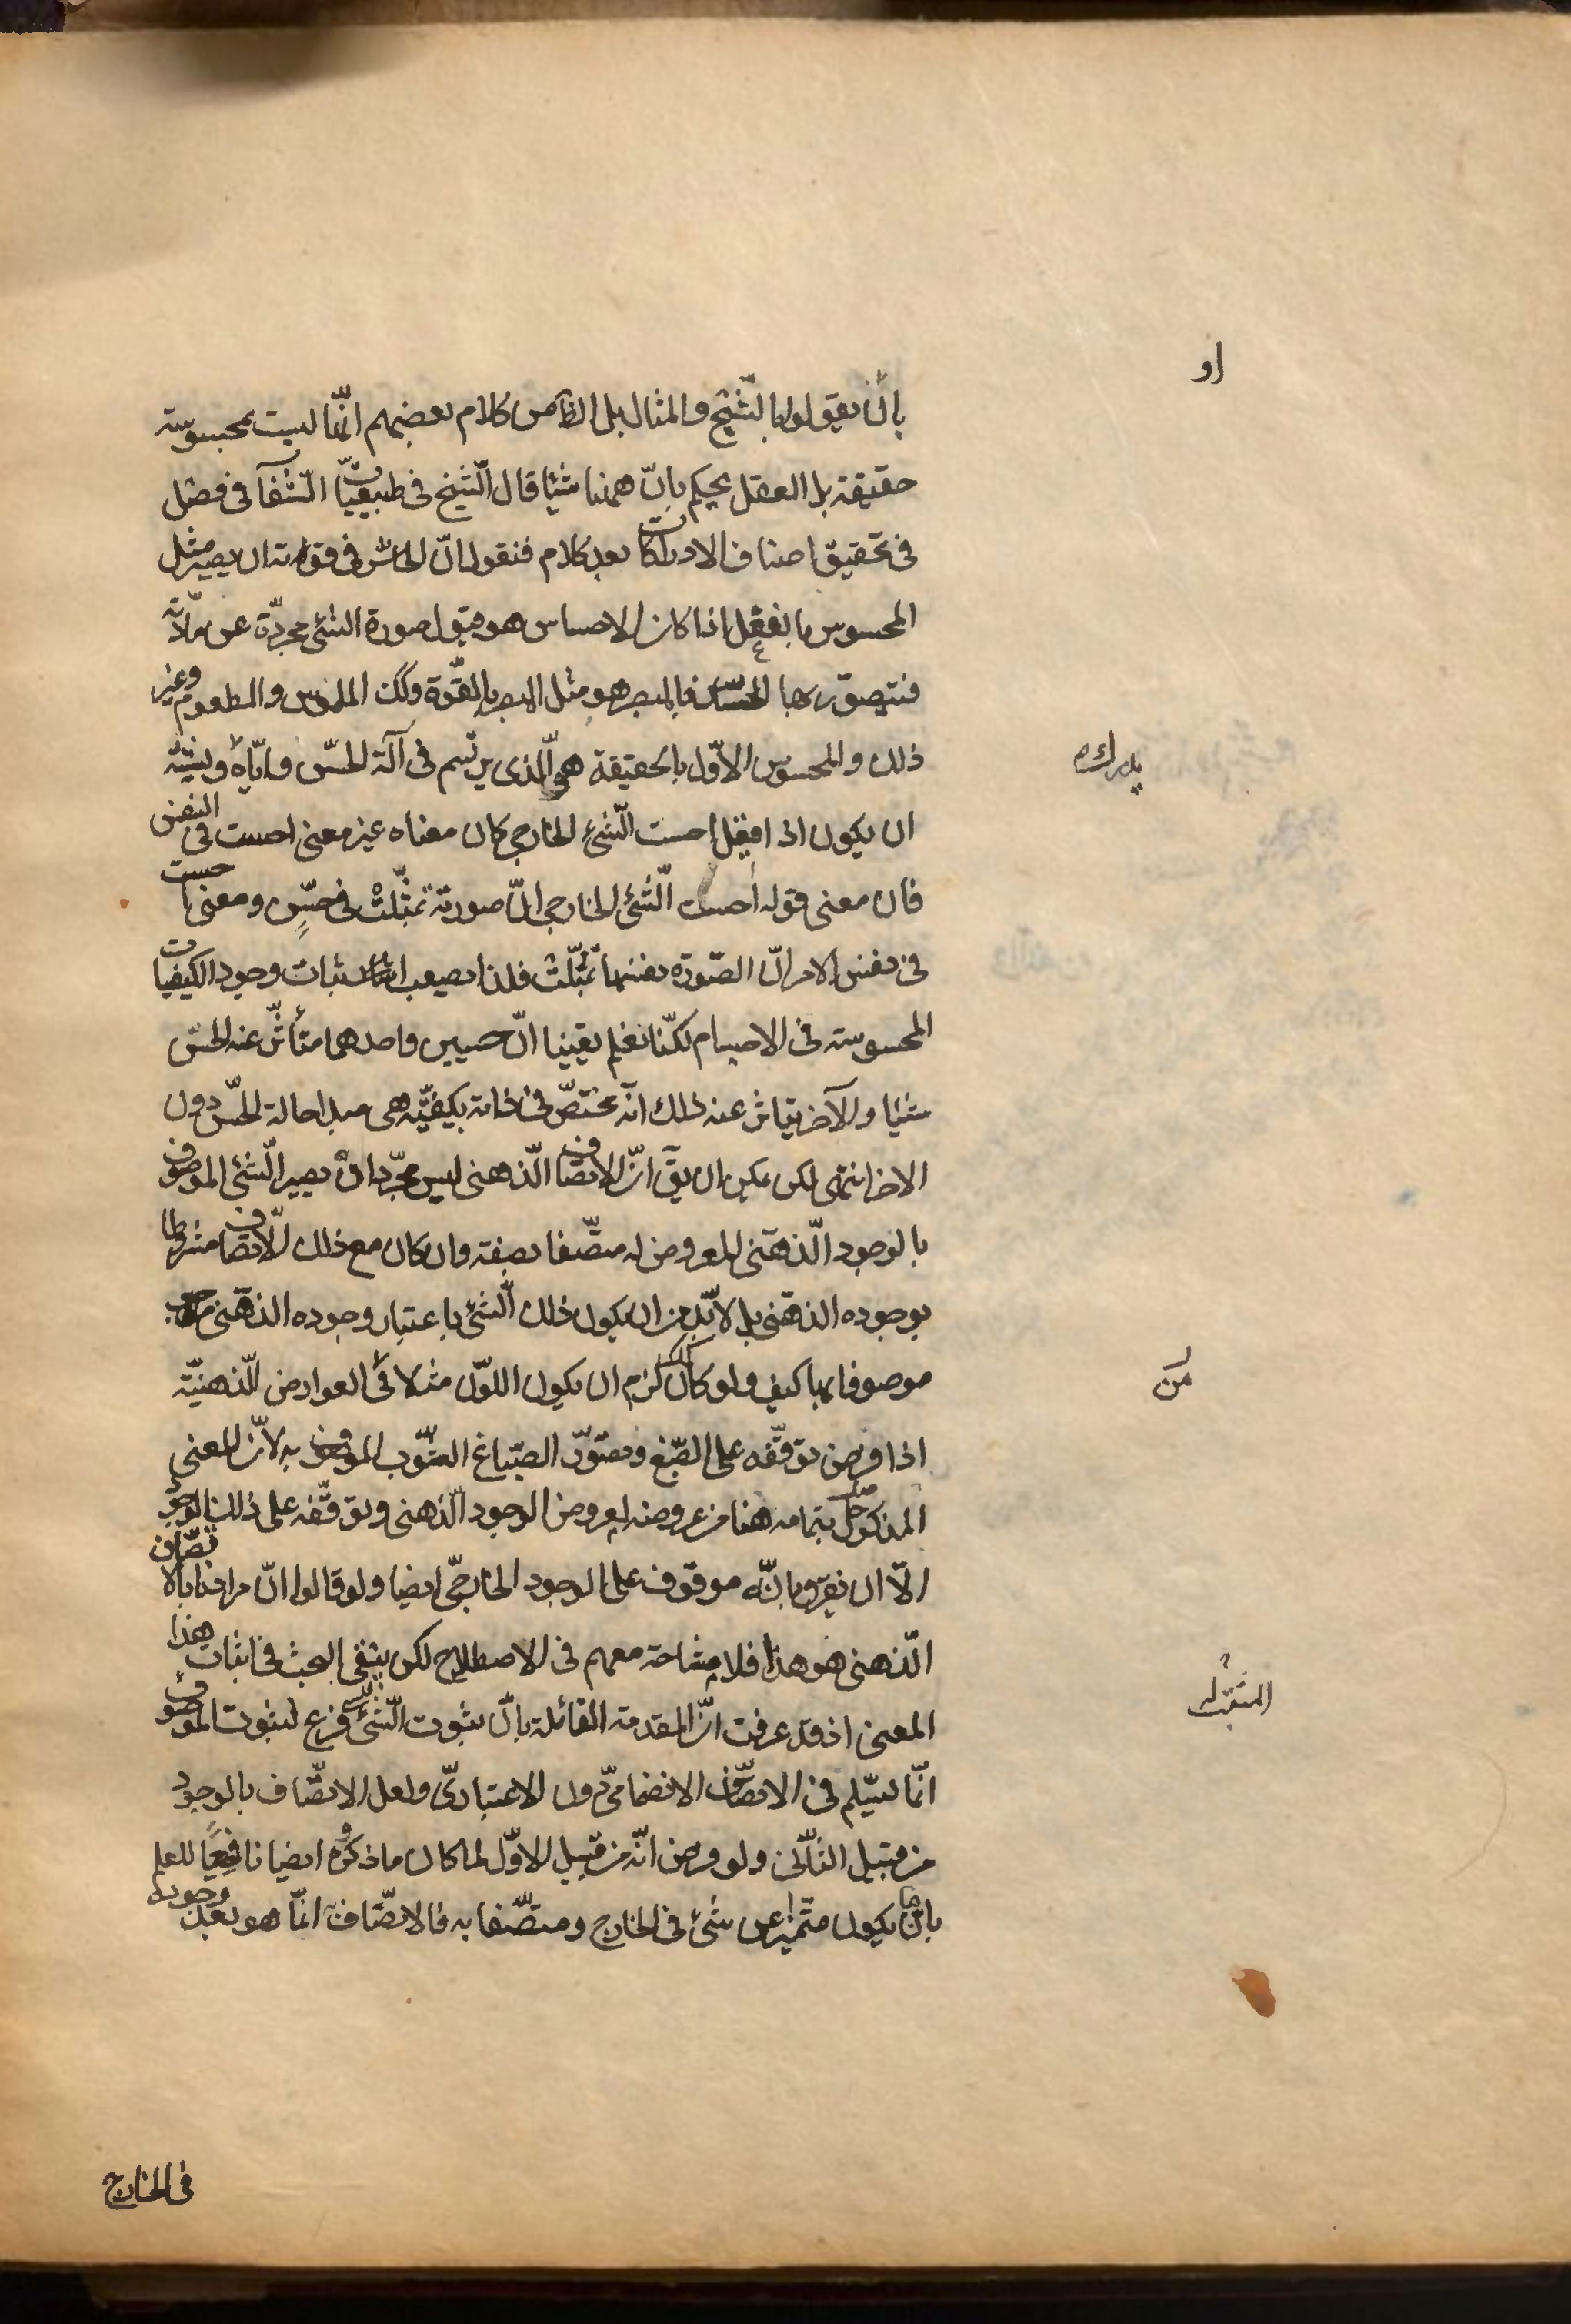 او
بان يقولوا بالشبح والمثال بل الظاهر من كلام بعضهم انّها ليست بمحسوسة
حقيقة بل العقل يحكم بانّ ههنا شيئا قال الشيخ فى طبيعيّات الشفآ فى فصل
فى تحقيق اصناف الادراكات بعد كلام فنقول انّ الحاسّ فى قوّته ان يصير مثل
المحسوس بالفعل اذا كان الاحساس هو قبول صورة الشئ مجرّدة عن مادّته
فتتصوّر بها الحاسّ فالمبصر هو مثل المبصر بالقوّة وكك الملموس والمطعوم وغير
ذلك والمحسوس الاوّل بالحقيقة هو الّذى يرتسم فى آلة الحسّ وايّاه
يدرك
ان يكون اذا قيل احسست الشئ الخارجى كان معناه غير معنى احسست فى النفس
فان معنى قوله احسست الشئ الخارجى انّ صورته تمثّلت فى حسّى ومعنى احسست
فى نفس الامر انّ الصّورة نفسها تمثّلت فلذا يصعب اثبات وجود الكيفيات
المحسوسة فى الاجسام لكنّا نعلم يقينا انّ جسمين واحدهما متأثّر عنه الحسّ
شيئا والآخر يتاثر عنه ذلك انّه مختصّ فى ذاته بكيفيّة هى مبدا احالة الحسّ دون
الاخر انتهى لكن يمكن ان يق انّ الاتصاف الذهنى ليس مجرّد انْ يصير الشئ الموصوف
بالوجود الذهنى المعروض له متّصفا بصفة وان كان مع ذلك الاتصاف مشروطا
بوجوده الذهنى بل لا بّد من ان يكون ذلك الشئ باعتبار وجوده الذهنى
موصوفا بها كيف ولو كان كذلك لزم ان يكون اللوّن مثلا من العوارض الذهنيّة
من
اذا فرض توقّفه على الصّبغ وتصوّر الصبّاغ الثوب الموصوف به لانّ المعنى
المذكور حاصل بتمامه هنا من عروضه لمعروض الوجود الذهنى وتوقّفه على ذلك الوجود
الّا ان يقرّوا بانّه موقوف على الوجود الخارجّى ايضا ولو قالوا انّ مرادنا بالاتّصاف
الذهنى هو هذا فلا مشاحة معهم فى الاصطلاح لكن يبقى البحث فى اثبات هذا
المعنى اذ قد عرفت انّ المقدمة القائلة بانّ ثبوت الشئ للشئ فرع لثبوت الموصوف
المثبت له
انّما يسلّم فى الاتصّاف الانضمامىّ دون الاعتبارىّ ولعل الاتصّاف بالوجود
من قبيل الثانى ولو فرض انّه من قبيل الاوّل لما كان ما ذكروه ايضا نافعا للعلم
بان ما يكون متميّزا عن شئ فى الخارج ومتصّفا به فالاتصّاف انّما هو بعد وجوده
فى الخارج